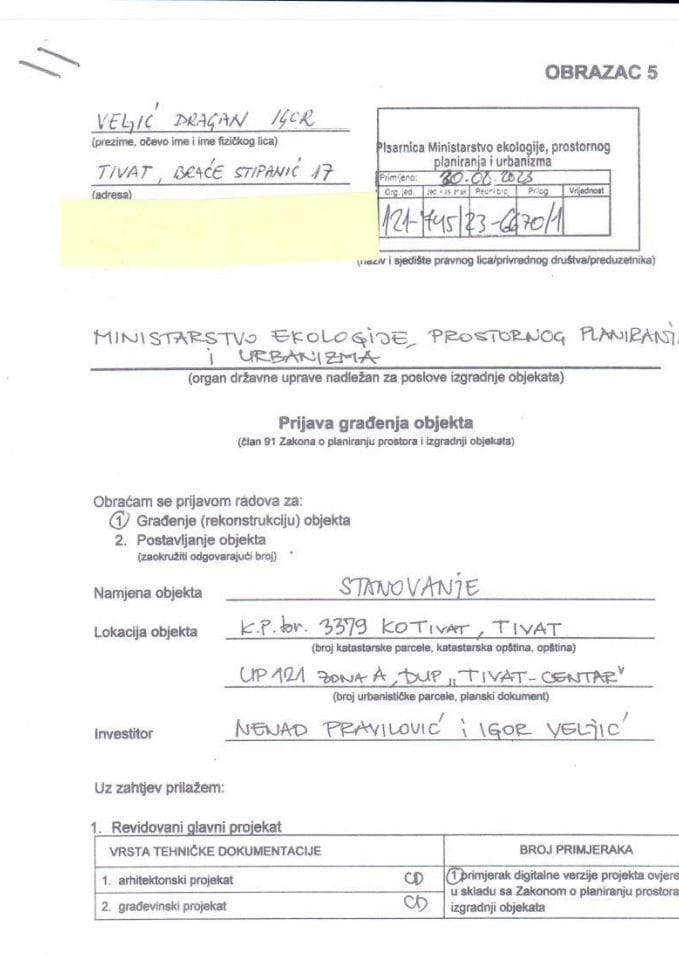 OBRAZAC 5
VELJIĆ DRAGAN IGOR
(prezime, očevo ime i ime fizičkog lica)
TIVAT, BRAĆE STIPANIĆ 17
(adresa)
Pisarnica Ministarstvo ekologije, prostornog
planiranja i urbanizma
Primljeno: 30.08.2023
Org. jed. Prilog Vrijednost
121-745/23-6670/1
(naziv i sjedište pravnog lica/privrednog društva/preduzetnika)
MINISTARSTVO EKOLOGIJE, PROSTORNOG PLANIRANJ
i URBANIZMA
(organ državne uprave nadležan za poslove izgradnje objekata)
Prijava građenja objekta
(član 91 Zakona o planiranju prostora i izgradnji objekata)
Obraćam se prijavom radova za:
1 Građenje (rekonstrukciju) objekta
2. Postavljanje objekta
(zaokružiti odgovarajući broj)
Namjena objekta STANOVANJE
Lokacija objekta K.P. br. 3379 KO TIVAT, TIVAT
(broj katastarske parcele, katastarska opština, opština)
UP 121 ZONA A, DUP „TIVAT-CENTAR"
(broj urbanističke parcele, planski dokument)
Investitor NENAD PRAVILOVIĆ i IGOR VELJIĆ
Uz zahtjev prilažem:
1. Revidovani glavni projekat
VRSTA TEHNIČKE DOKUMENTACIJE BROJ PRIMJERAKA
1. arhitektonski projekat CD 1 primjerak digitalne verzije projekta ovjere
u skladu sa Zakonom o planiranju prostora
2. građevinski projekat CD izgradnji objekata